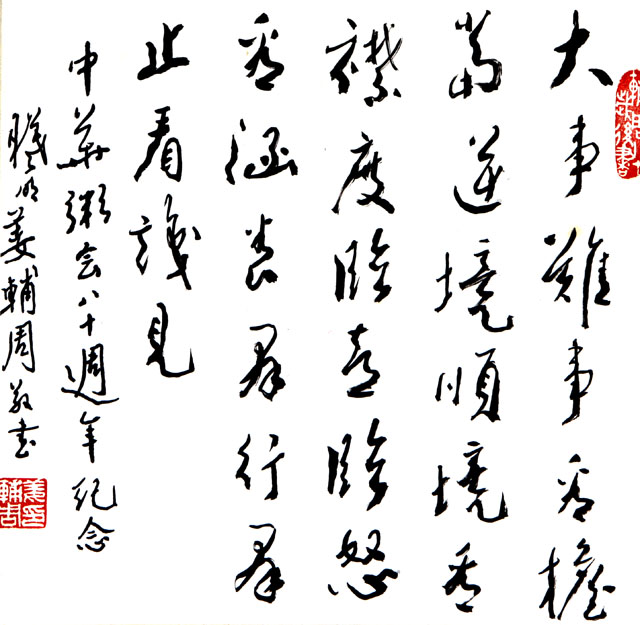 大事難事看擔
當逆境順境看
襟度臨喜臨怒
看涵養群行群
止看識見
中華粥会八十週年紀念
姜輔周敬书
姜印輔周